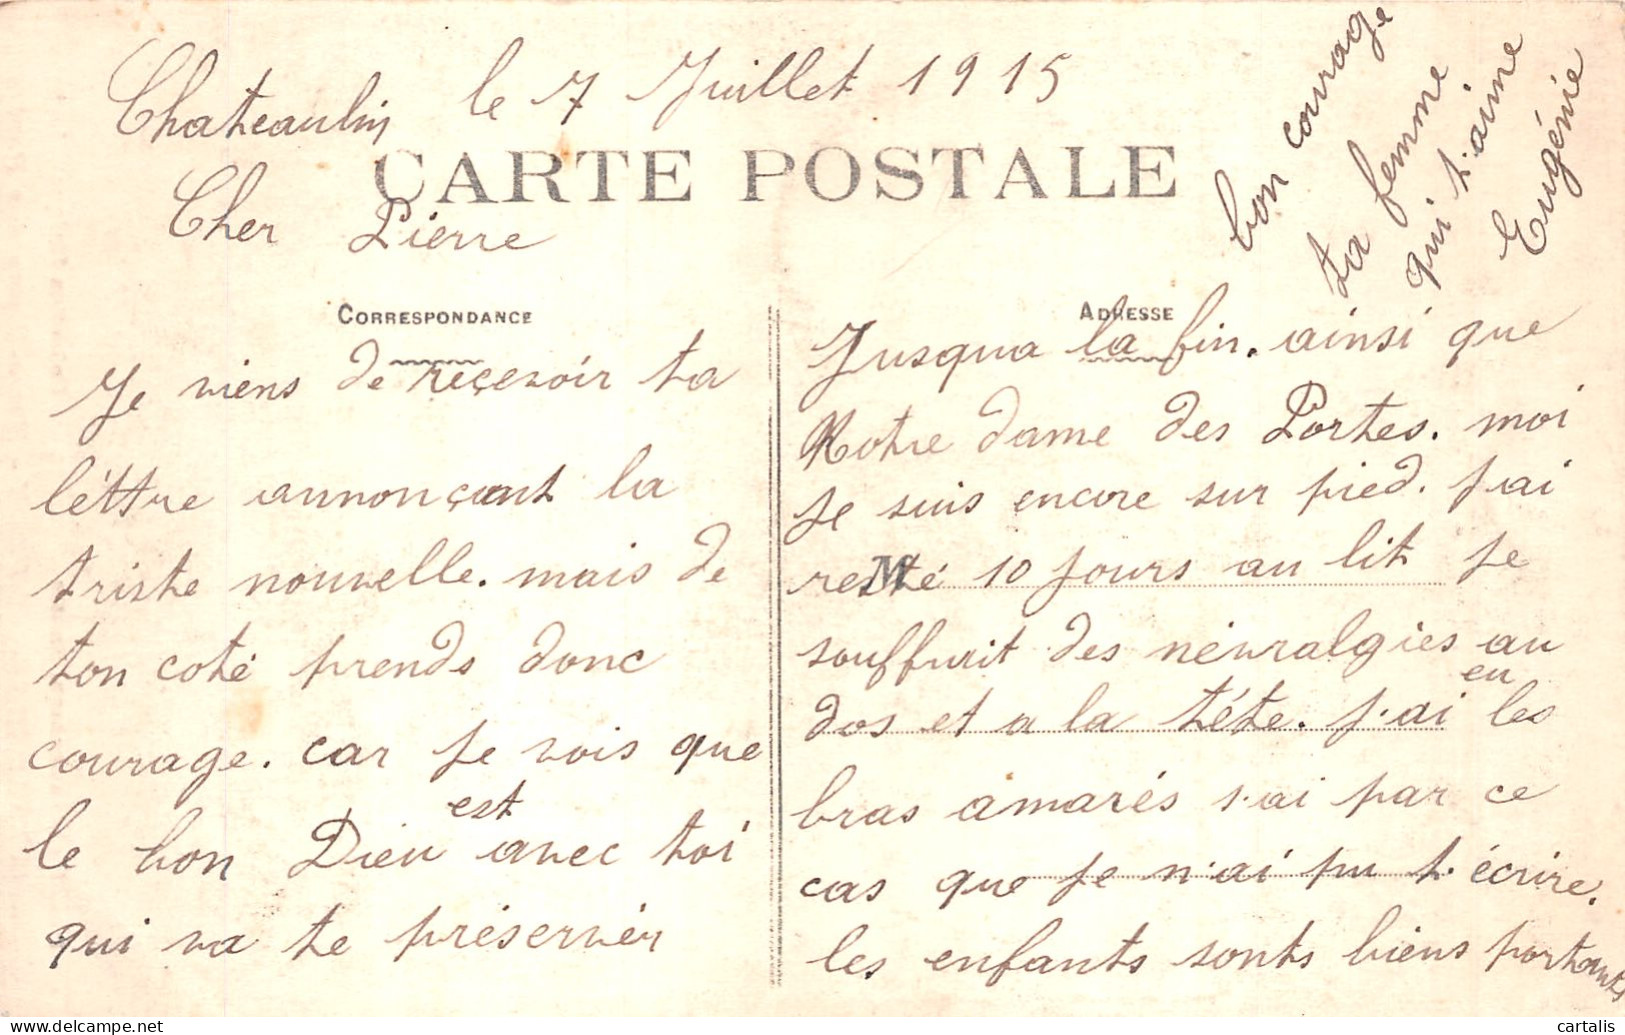 Chateaulin le 7 Juillet 1915
CARTE POSTALE
Cher Pierre
CORRESPONDANCE
Je viens de reçevoir ta
léttre annonçant la
triste nouvelle. mais de
ton coté prends donc
courage. car je vois que
le bon Dieu est avec toi
qui va te préservér
ADRESSE
Jusqua la fin. ainsi que
Notre dame des Portes. moi
je suis encore sur pied. j'ai
resté 10 jours au lit je
M
souffrit des néuralgies au
dos et a la téte. j'ai eu les
bras amarés s'ai par ce
cas que je n'ai pu t'écrire.
les enfants sonts biens portants
bon courage
ta femme
qui t'aime
Eugénie
cartalis